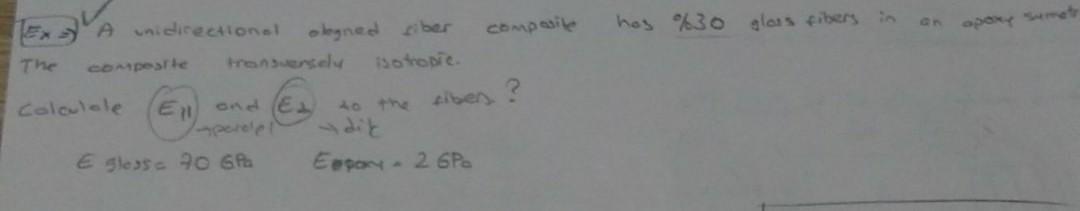 Ex => A unidirectional alıgned fiber composite has %30 glass fibers in an epoxy
The composite transversely isotropic.
Calculate E11 and E⊥ to the fibers ?
→ paralel → dik
E glass = 70 GPa Eepoxy = 2 GPa